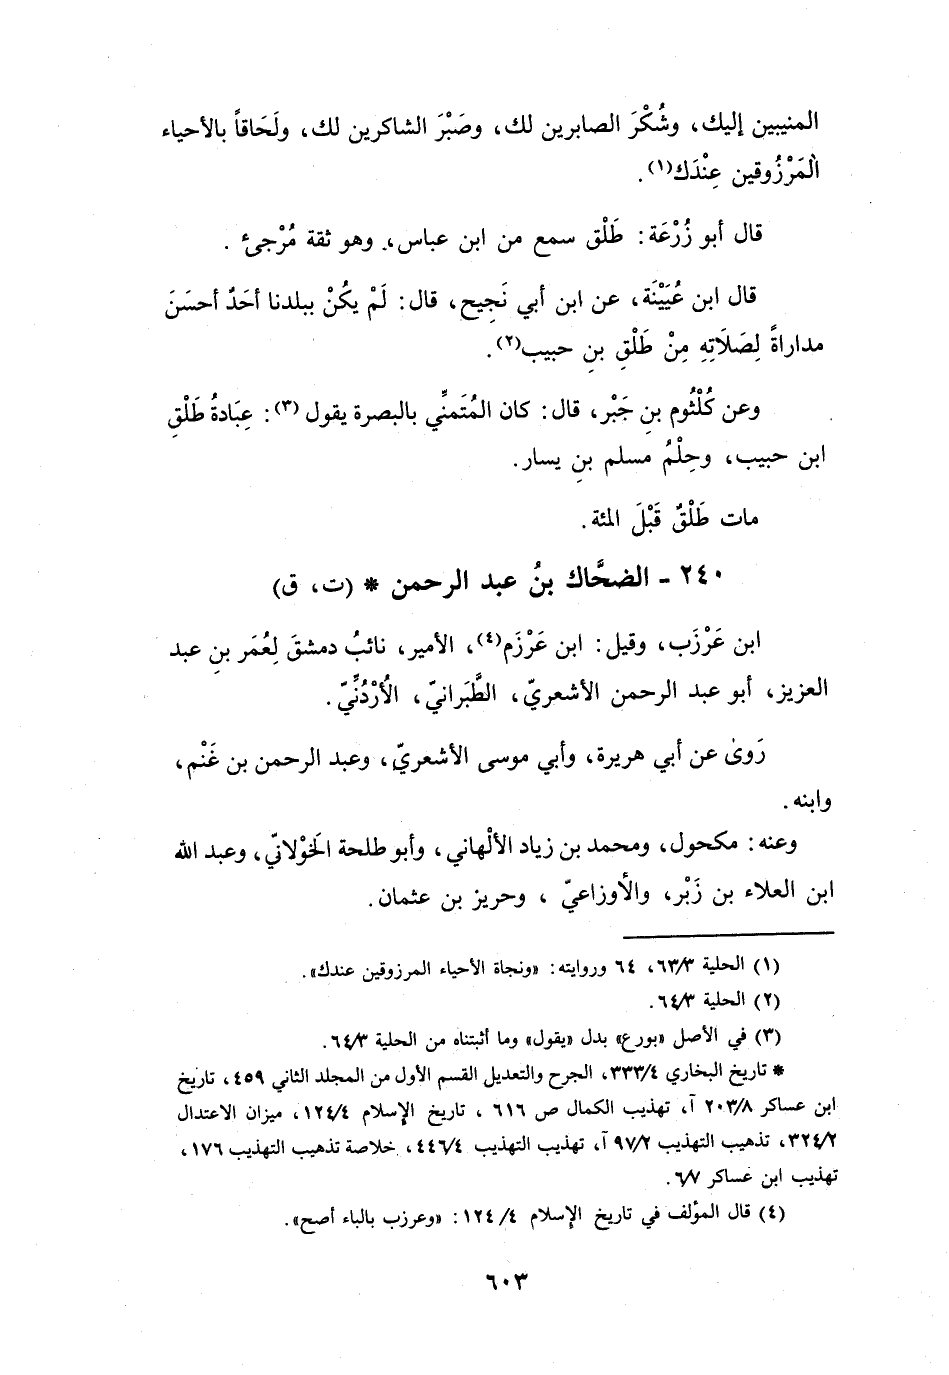 المنيبين إليك، وشُكْرَ الصابرين لك، وصَبْرَ الشاكرين لك، ولَحَاقاً بالأحياء
المَرْزُوقين عِنْدَك(١).
قال أبو زُرْعَة: طَلْق سمع من ابن عباس، وهو ثقة مُرْجىء .
قال ابن عُيَيْنَة، عن ابن أبي نَجِيح، قال: لَمْ يكُنْ ببلدنا أحَدٌ أحسَنَ
مداراةً لِصَلَاتِهِ مِنْ طَلْقِ بنِ حبيب(٢).
وعن كُلْثُوم بنِ جَبْر، قال: كان المُتَمنِّي بالبصرة يقول (٣): عِبَادةُ طَلْقِ
ابن حبيب، وحِلْمُ مسلم بنِ يسار.
مات طَلْقٌ قَبْلَ المئة.
٢٤٠ - الضحَّاك بنُ عبد الرحمن * (ت، ق)
ابن عَرْزَب، وقيل: ابن عَرْزَم(٤)، الأمير، نائبُ دمشقَ لِعُمَر بنِ عبد
العزيز، أبو عبد الرحمن الأشعريّ، الطَّبَرانيّ، الأُرْدُنِّيّ.
رَوىٰ عن أبي هريرة، وأبي موسى الأشعريّ، وعبد الرحمن بن غَنْم،
وابنه.
وعنه: مكحول، ومحمد بن زياد الألْهاني، وأبو طلحة الخَوْلانيّ، وعبد الله
ابن العلاء بن زَبْر، والأوزاعيّ ، وحريز بن عثمان.
(١) الحلية ٦٣/٣، ٦٤ وروايته: «ونجاة الأحياء المرزوقين عندك».
(٢) الحلية ٦٤/٣.
(٣) في الأصل «بورع» بدل «يقول» وما أثبتناه من الحلية ٦٤/٣.
* تاريخ البخاري ٣٣٣/٤، الجرح والتعديل القسم الأول من المجلد الثاني ٤٥٩، تاريخ
ابن عساكر ٢٠٣/٨ آ، تهذيب الكمال ص ٦١٦ ، تاريخ الإسلام ١٢٤/٤، ميزان الاعتدال
٣٢٤/٢، تذهيب التهذيب ٩٧/٢ آ، تهذيب التهذيب ٤٤٦/٤، خلاصة تذهيب التهذيب ١٧٦،
تهذيب ابن عساكر ٦/٧.
(٤) قال المؤلف في تاريخ الإسلام ١٢٤/٤: «وعرزب بالباء أصح».
٦٠٣